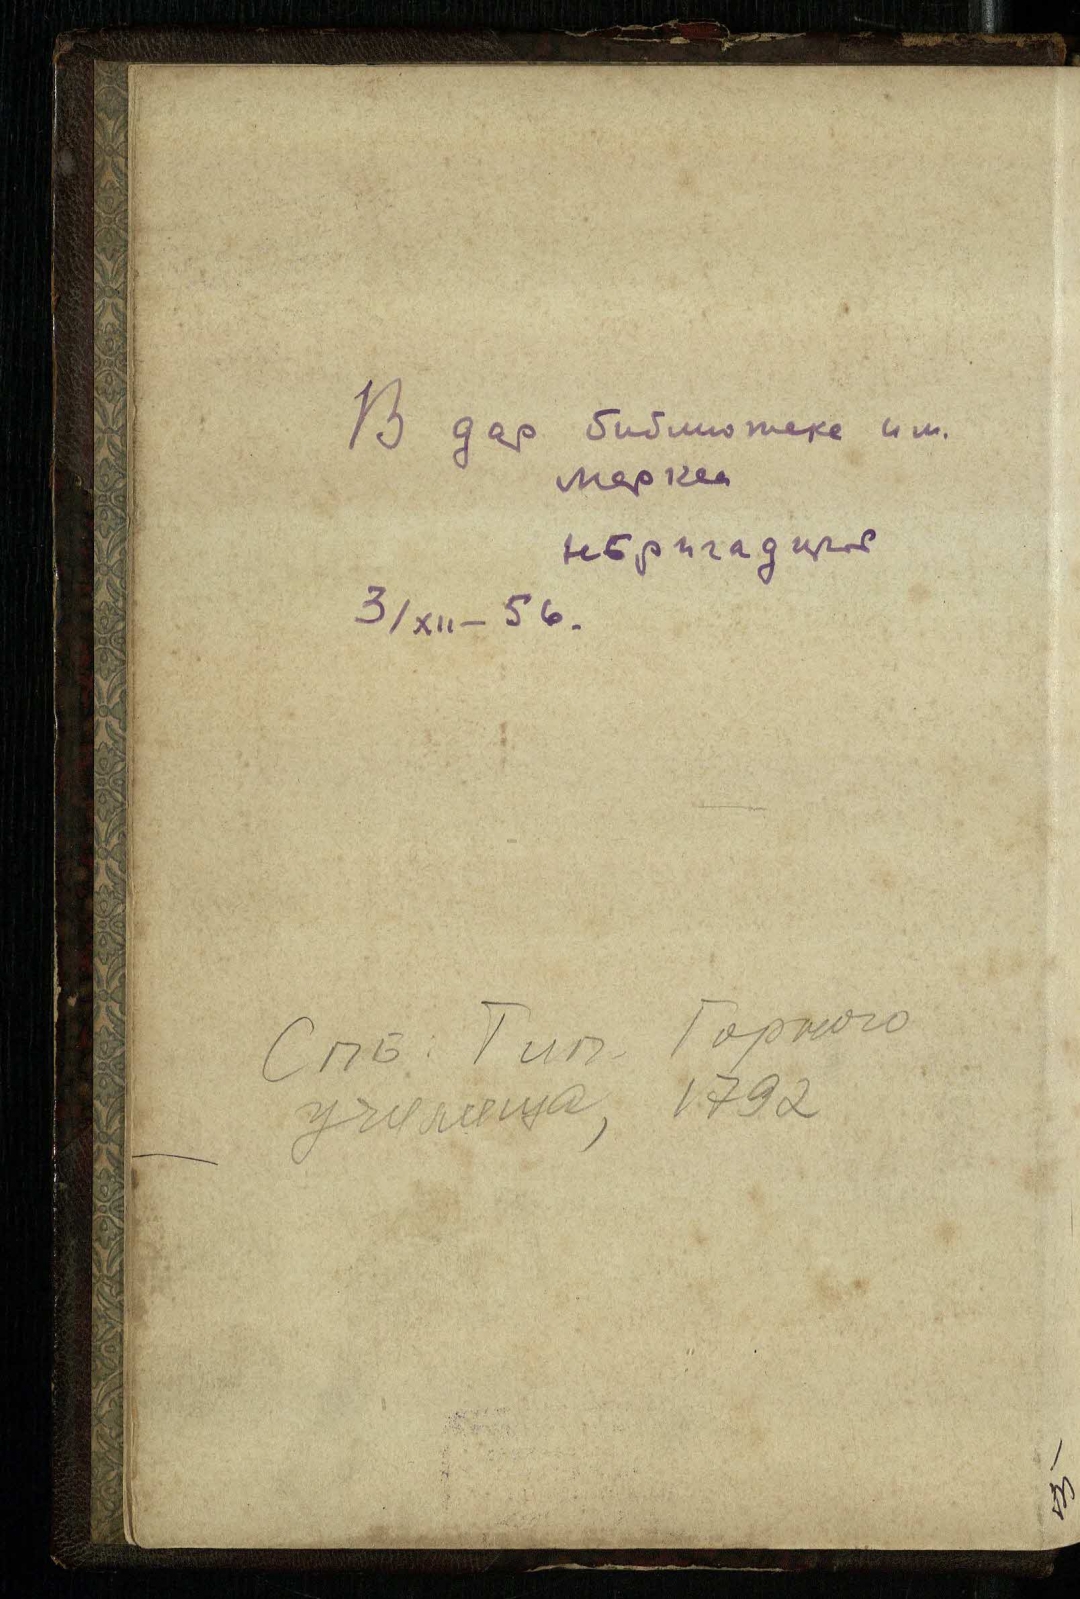 В дар библиотеке им.
Маркса
3/XII – 56.
Спб: Тип. Горного
училища, 1792